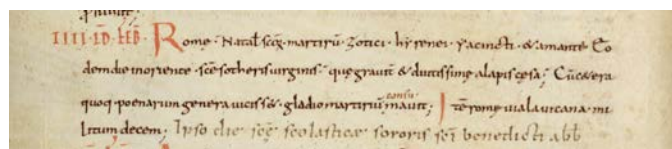 IIII. ID. FEB. Rome. Natał sc̄ę. martirū. Zotici. hyrenei. yacincti. & amante. Eo
dem die inoriente. sc̄e sotheris virginis. que graviť & diutissime alapis cęsa; Cūcętera
quoq. poenarum genera vicisse&. gladio martiriū consūmavit; Itē rome via lavicana. mi
litum decem; Ipso die sc̄ę scolasticæ sororis sc̄i benedicti abb̄